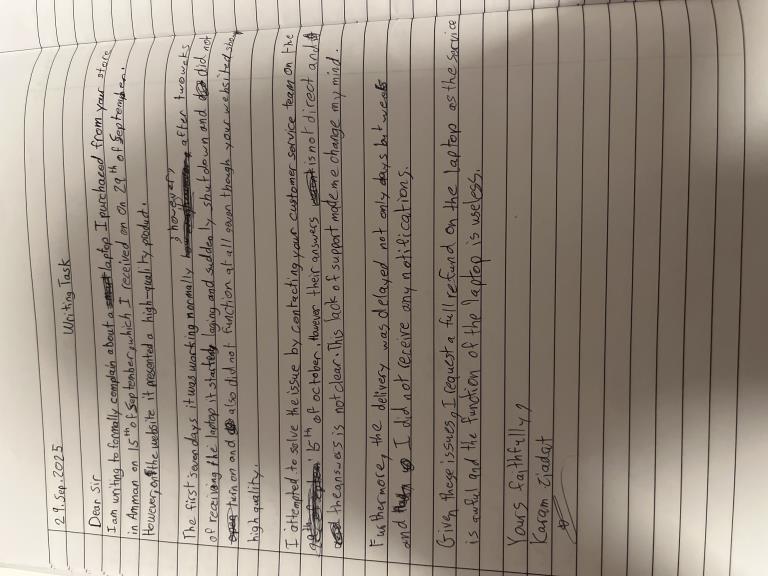 29.Sep.2025
Writing Task
Dear Sir
I am writing to formally complain about a laptop I purchased from your store
in Amman on 15th of September, which I received on On 29th of September.
However, on the website it presented a high-quality product.
The first seven days it was working normally, however, after two weeks
of receiving the laptop it starting laging and suddenly shutdown and did not
turn on and also did not function at all even though your websited show
high quality.
I attempted to solve the issue by contacting your customer service team On the
15th of october, However their answers is not direct and
the answers is not clear. This lack of support made me change my mind.
Furthermore, the delivery was delayed not only days but weeks
and I did not receive any notifications.
Given these issues, I request a full refund on the laptop as the service
is awful and the function of the laptop is useless.
Yours faithfully,
Karam Ziadat